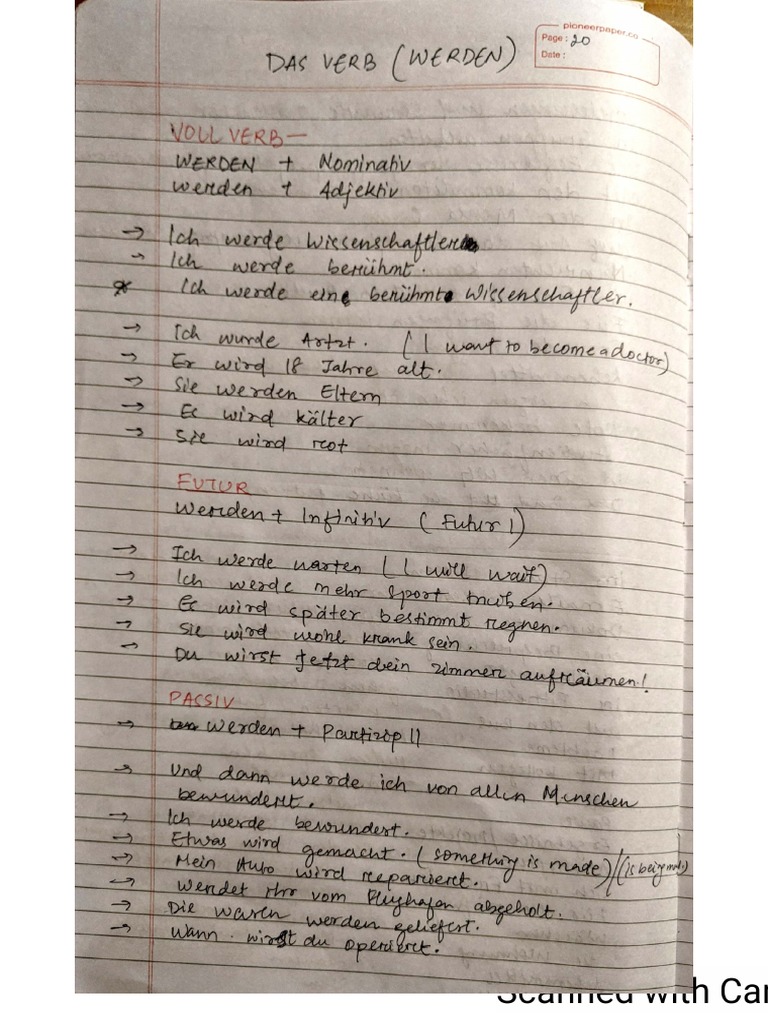 pioneerpaper.co
Page: 20
Date:
DAS VERB (WERDEN)
VOLL VERB—
WERDEN + Nominativ
werden + Adjektiv
→ Ich werde Wissenschaftler
→ Ich werde berühmt.
* Ich werde eine berühmte Wissenschaftler.
→ Ich wurde Artzt. (I want to become a doctor)
→ Er wird 18 Jahre alt.
→ Sie werden Eltern
→ Es wird kälter
→ Sie wird rot
FUTUR
Werden + Infinitiv (Futur I)
→ Ich werde warten (I will wait)
→ Ich werde mehr sport treiben.
→ Es wird später bestimmt regnen.
→ Sie wird wohl krank sein.
→ Du wirst Jetzt dein zimmer aufräumen!
PASSIV
→ Werden + Partizip II
→ Und dann werde ich von allen Menschen
bewundert.
→ Ich werde bewundert.
→ Etwas wird gemacht. (something is made)/(is being made)
→ Mein Auto wird repariert.
→ Werdet Ihr vom Flughafen abgeholt.
→ Die waren werden geliefert.
→ Wann wirst du operiert.
Scanned with Ca